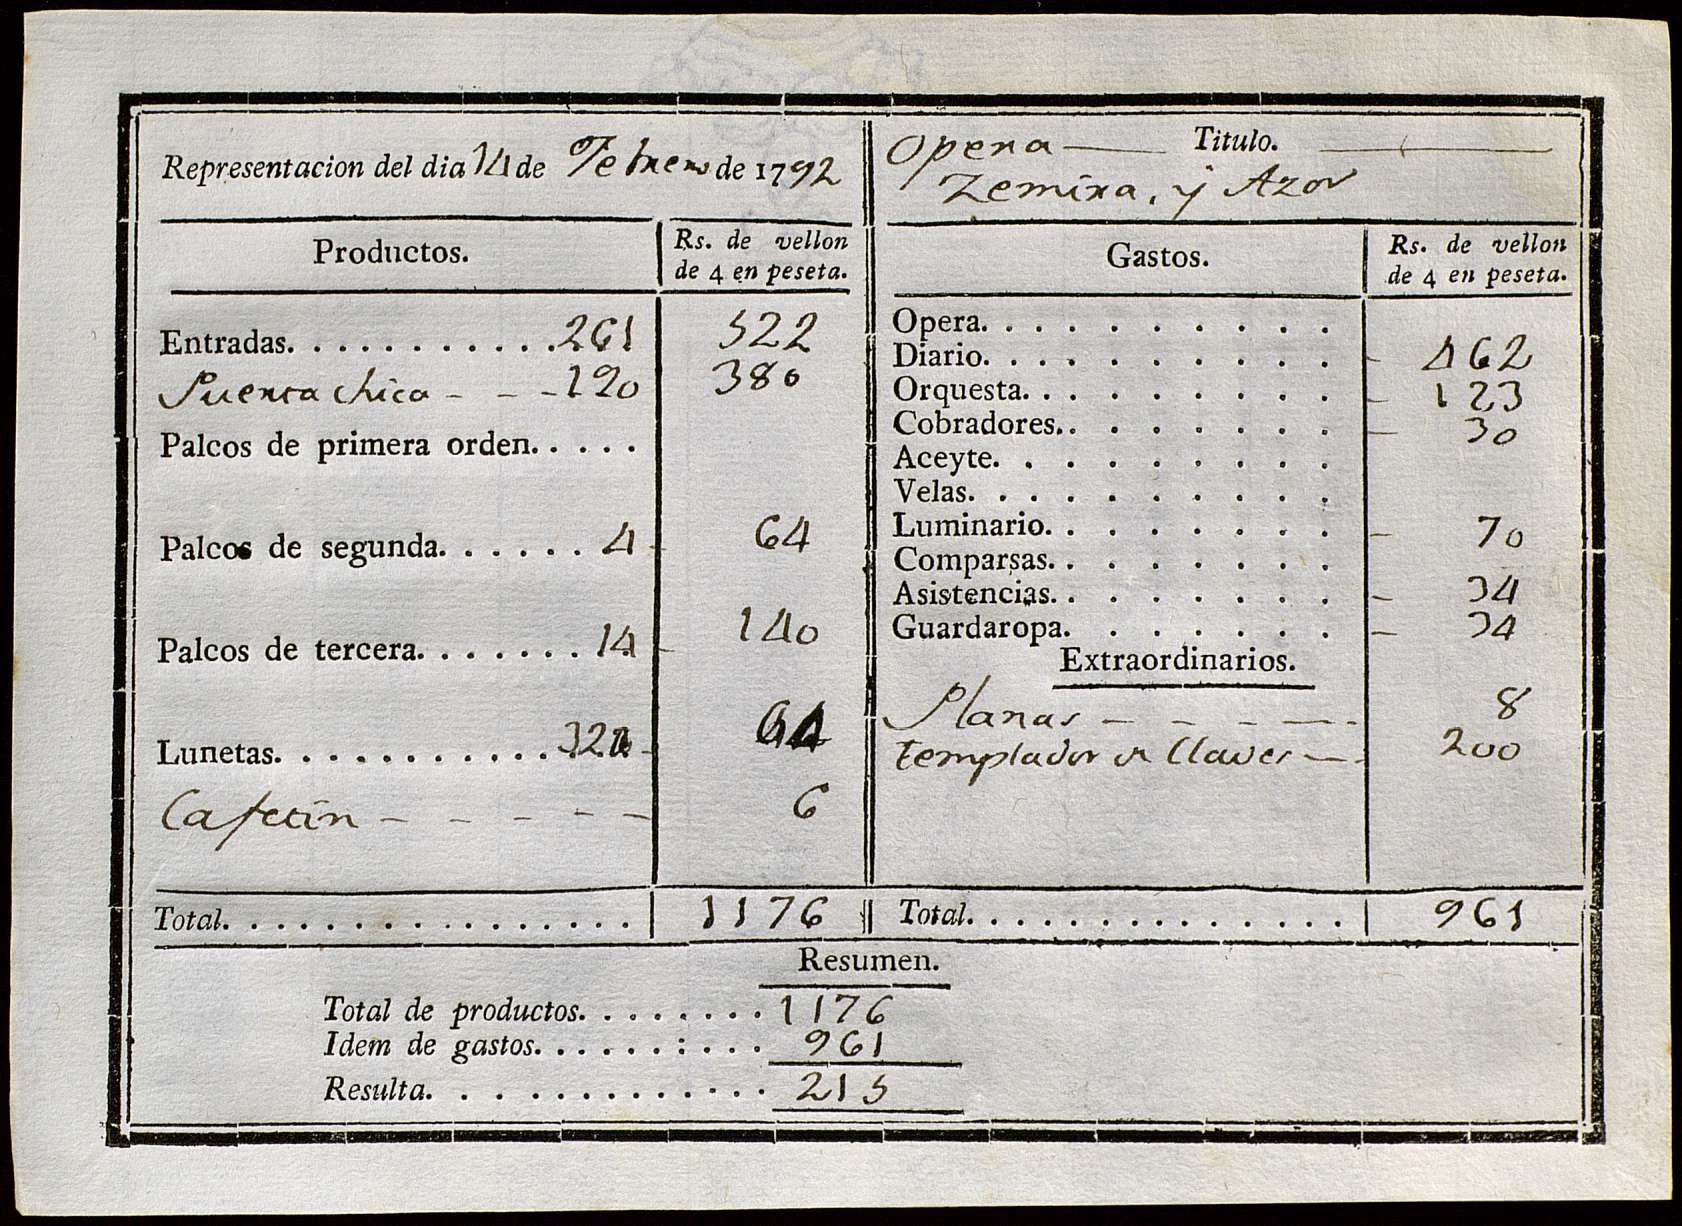 Representacion del dia 14 de Febrero de 1792
Productos.
Rs. de vellon
de 4 en peseta.
Entradas. . . . . . . . . . . 261 522
Puerta chica - - - 190 380
Palcos de primera orden. . . . .
Palcos de segunda. . . . . . 4 - 64
Palcos de tercera. . . . . . . 14 - 140
Lunetas. . . . . . . . . . . 32 - 64
Cafetin - - - - - - 6
Total. . . . . . . . . . . . . . . . 1176
Opera — Titulo. —
Zemira, y Azor
Gastos.
Rs. de vellon
de 4 en peseta.
Opera. . . . . . . . . . .
Diario. . . . . . . . . . . - 462
Orquesta. . . . . . . . . . - 123
Cobradores. . . . . . . . - 30
Aceyte. . . . . . . . . .
Velas. . . . . . . . . . .
Luminario. . . . . . . . - 70
Comparsas. . . . . . . .
Asistencias. . . . . . . . - 34
Guardaropa. . . . . . . - 34
Extraordinarios.
Planas - - - - - 8
templador de Claves - - 200
Total. . . . . . . . . . . . . . . 961
Resumen.
Total de productos. . . . . . . . 1176
Idem de gastos. . . . . . : . . . 961
Resulta. . . . . . . . . . . . . 215